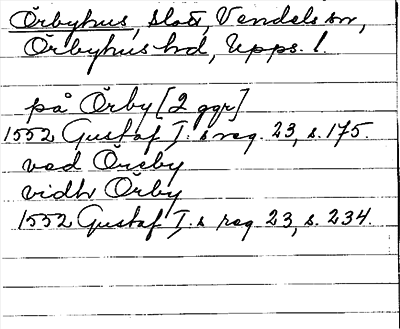 Örbyhus, slott, Vendels sn,
Örbyhus hd, Upps. l.
på Örby [2 ggr]
1552 Gustaf I:s reg. 23, s. 175.
vad Öreby
vidh Örby
1552 Gustaf I:s reg. 23, s. 234.